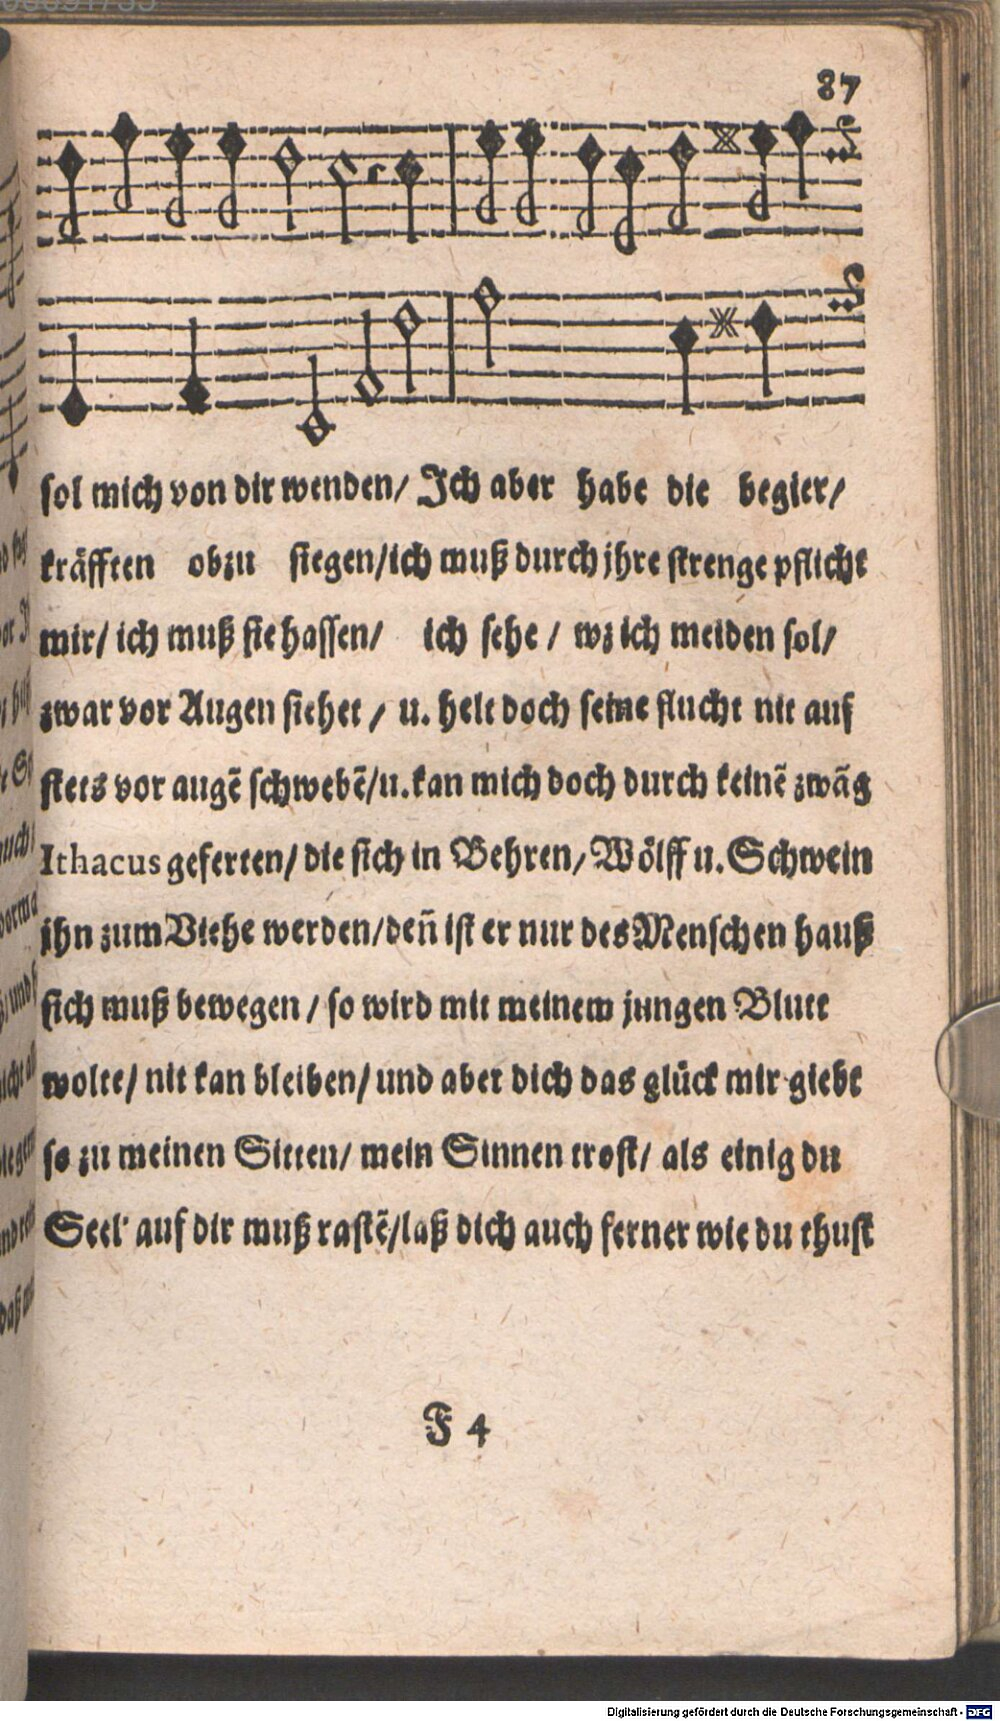 87
sol mich von dir wenden/ Ich aber habe die begier/
kräfften obzu siegen/ich muß durch jhre strenge pflicht
mir/ ich muß sie hassen/ ich sehe / wz ich meiden sol/
zwar vor Augen siehet / u. helt doch seine flucht nit auf
stets vor augẽ schwebẽ/u. kan mich doch durch keinẽ zwãg
Ithacus geferten/ die sich in Behren/ Wölff u. Schwein
ihn zum Viehe werden/deñ ist er nur des Menschen hauß
sich muß bewegen / so wird mit meinem jungen Blute
wolte/ nit kan bleiben/ und aber dich das glück mir giebt
so zu meinen Sitten/ mein Sinnen trost/ als einig du
Seel' auf dir muß rastẽ/laß dich auch ferner wie du thust
F 4
Digitalisierung gefördert durch die Deutsche Forschungsgemeinschaft - DFG